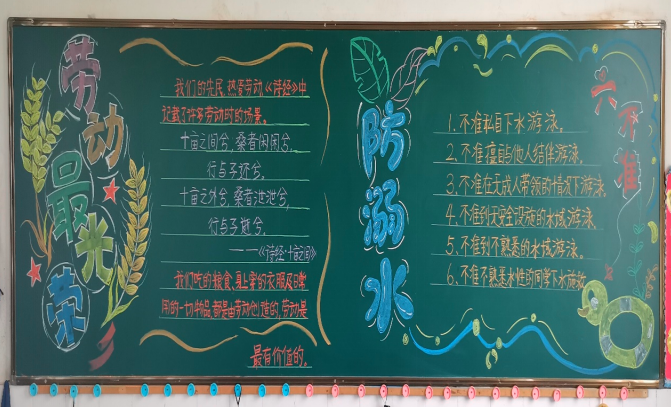 劳动最光荣
我们的先民,热爱劳动《诗经》中
记载了许多劳动时的场景。
十亩之间兮,桑者闲闲兮。
行与子还兮。
十亩之外兮,桑者泄泄兮,
行与子逝兮。
——《诗经·十亩之间》
我们吃的粮食、身上穿的衣服及日常
用的一切物品,都是由劳动创造的,劳动是
最有价值的。
防溺水
六不准
1.不准私自下水游泳。
2.不准擅自与他人结伴游泳。
3.不准在无成人带领的情况下游泳。
4.不准到无安全设施的水域游泳。
5.不准到不熟悉的水域游泳。
6.不准不熟悉水性的同学下水施救